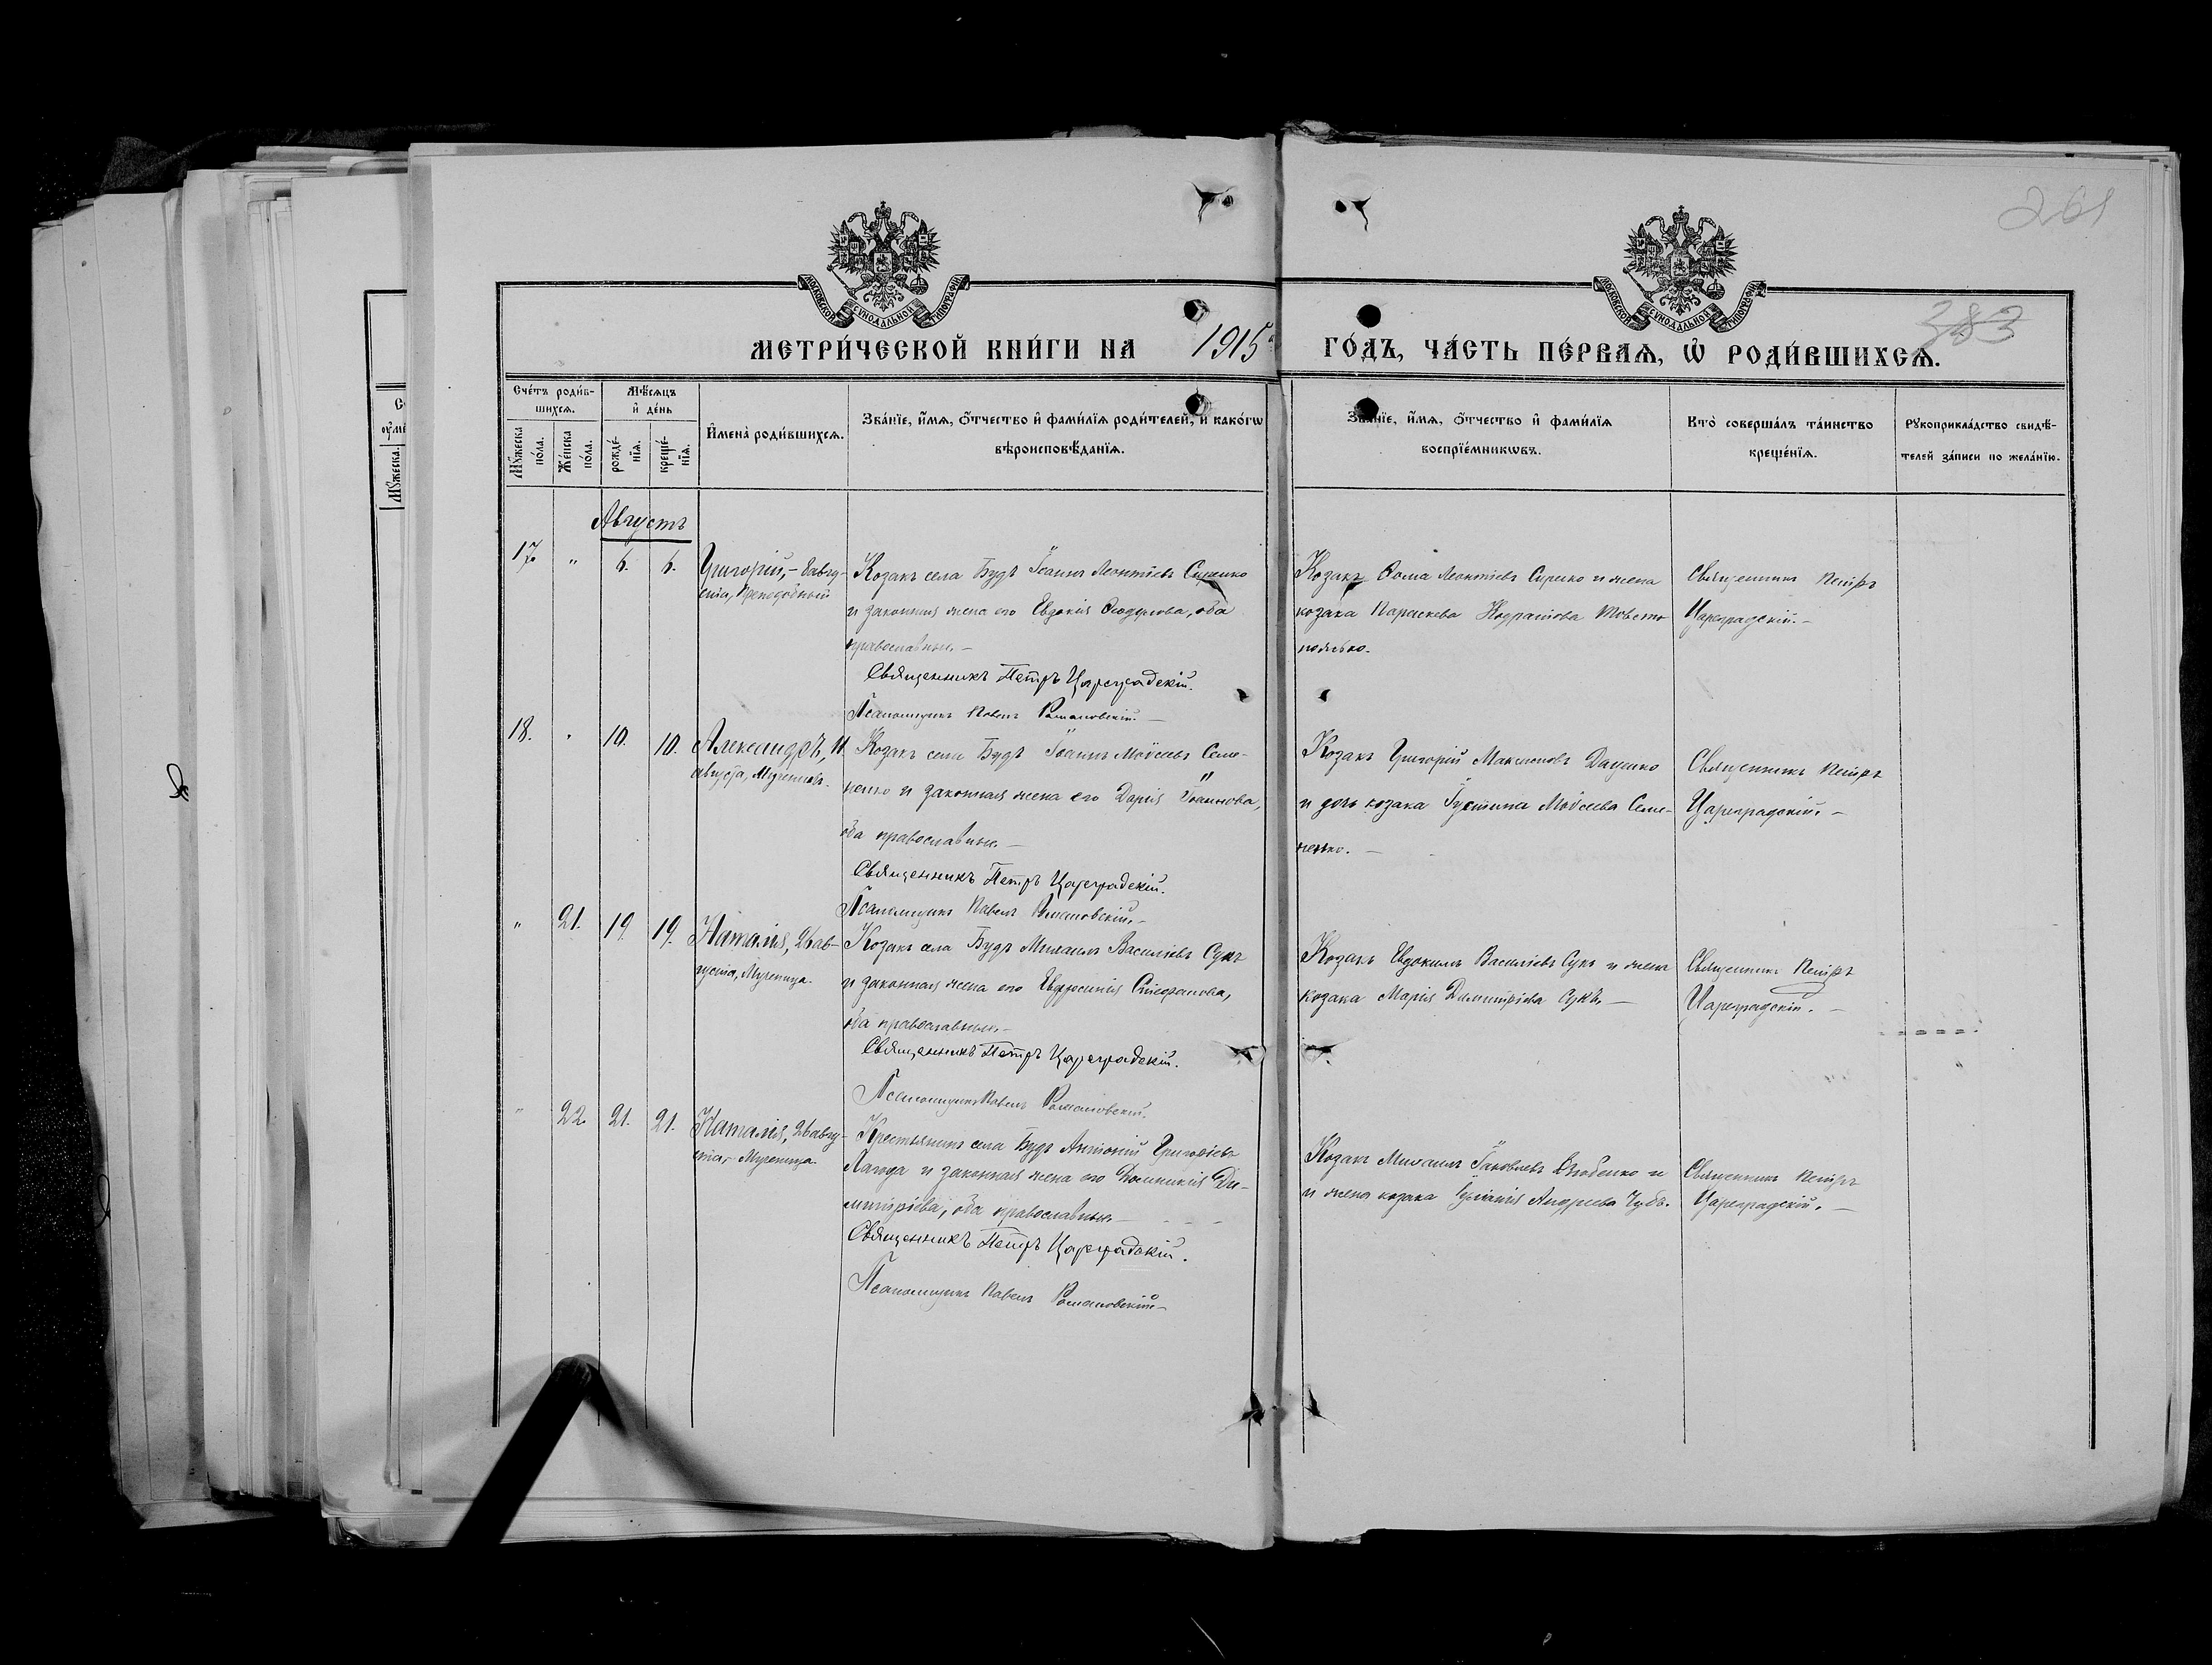 261
383
МОСКОВСКОЙ СУНОДАЛЬНОЙ ТИПОГРАФІИ
МОСКОВСКОЙ СУНОДАЛЬНОЙ ТИПОГРАФІИ
МЕТРИ́ЧЕСКОЙ КНИ́ГИ НА 1915 ГО́ДЪ, ЧА́СТЬ ПЕ́РВАѦ, Ѡ҆ РОДИ́ВШИХСѦ.
Сче́тъ роди́в-
шихсѧ.
Мꙋ́жеска по́ла.
Же́нска по́ла.
Мѣ́сѧцъ
и҆ де́нь
рожде́-
нїѧ.
креще́-
нїѧ.
И҆мена̀ роди́вшихсѧ.
Зва́нїе, и҆́мѧ, ѻ҆́тчество и҆ фами́лїѧ роди́телей, и҆ како́гѡ
вѣроисповѣ́данїѧ.
Зва́нїе, и҆́мѧ, ѻ҆́тчество и҆ фами́лїѧ
воспрїе́мникѡвъ.
Кто̀ соверша́лъ та́инство
креще́нїѧ.
Рꙋкоприкла́дство свидѣ́-
телей за́писи по жела́нїю.
Августъ
17. " 6. 6.
Григорій, - 8 авгу-
ста, Преподобный
Козакъ села Будъ Іоаннъ Леонтіевъ Сиренко
и законная жена его Евдокія Ѳеодорова, оба
православные. -
Священникъ Петръ Цареградскій.
Псаломщикъ Павелъ Романовскій. -
Козакъ Ѳома Леонтіевъ Сиренко и жена
козака Параскева Кодратова Товсто-
Священникъ Петръ
Цареградскій. -
18. " 10. 10.
Александръ, 11
августа, Мученикъ.
Козакъ села Будъ Іоаннъ Моѵсеевъ Семе-
ненко и законная жена его Дарія Іоаннова,
оба православные. -
Священникъ Петръ Цареградскій.
Псаломщикъ Павелъ Романовскій. -
Козакъ Григорій Максимовъ Даценко
и дочь козака Іустина Моѵсеева Семе-
ненко. -
Священникъ Петръ
Цареградскій. -
" 21. 19. 19.
Наталія, 26 ав-
густа, Мученица.
Козакъ села Будъ Михаилъ Василіевъ Сукъ
и законная жена его Евфросинія Стефанова,
оба православные. -
Священникъ Петръ Цареградскій.
Псаломщикъ Павелъ Романовскій.
Козакъ Евдокимъ Василіевъ Сукъ и жена
козака Марія Димитріева Сукъ. -
Священникъ Петръ
Цареградскій. -
" 22. 21. 21.
Наталія, 26 авгу-
ста, - Мученица.
Крестьянинъ села Будъ Антоній Григоріевъ
Лагода и законная жена его Домникія Ди-
митріева, оба православные. -
Священникъ Петръ Цареградскій.
Псаломщикъ Павелъ Романовскій. -
Козакъ Михаилъ Іаковлевъ и
и жена козака Іуліанія Андреева Чубъ.
Священникъ Петръ
Цареградскій. -